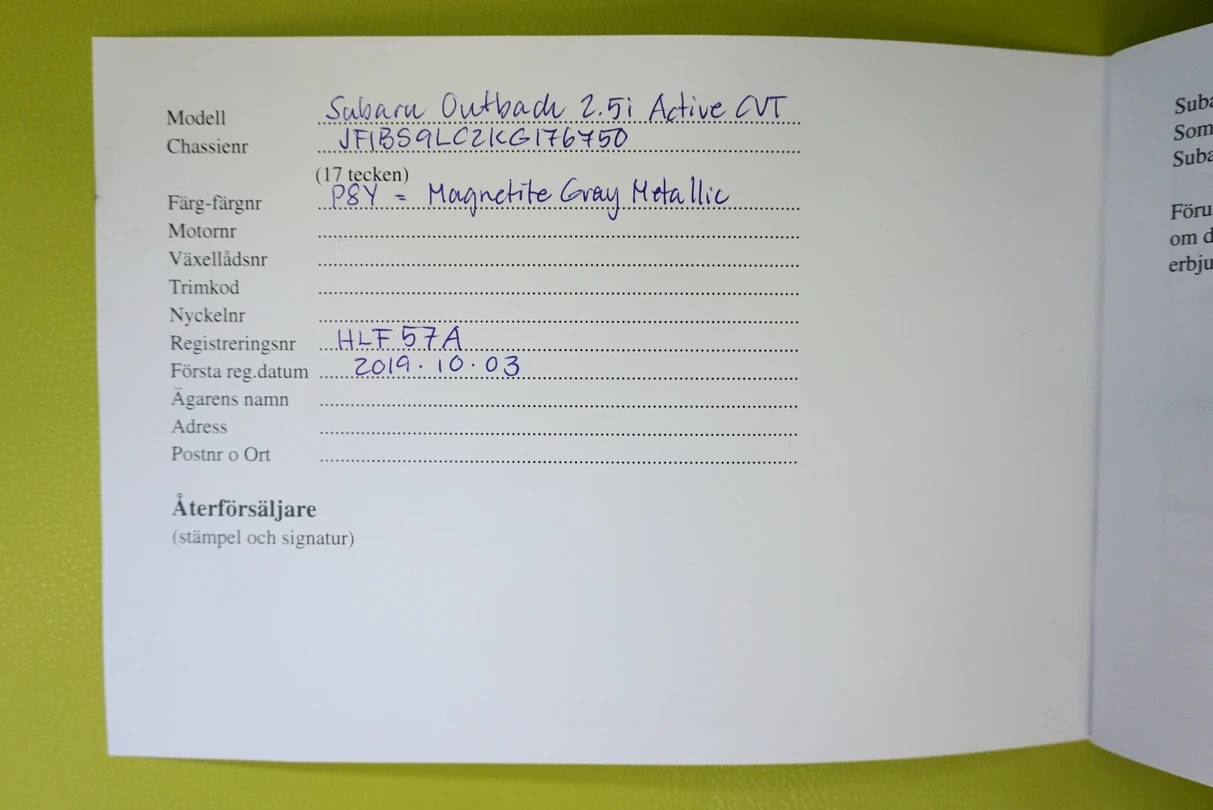 Modell Subaru Outback 2.5i Active CVT
Chassienr JF1BS9LC2KG176750
(17 tecken)
Färg-färgnr P8Y = Magnetite Gray Metallic
Motornr
Växellådsnr
Trimkod
Nyckelnr
Registreringsnr HLF 57A
Första reg.datum 2019.10.03
Ägarens namn
Adress
Postnr o Ort
Återförsäljare
(stämpel och signatur)
Suba
Som
Suba
Föru
om d
erbju